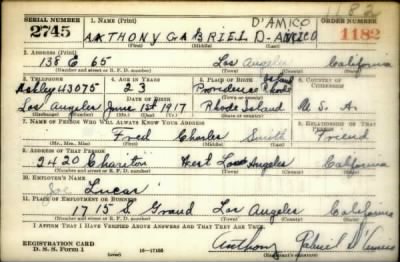 1182
SERIAL NUMBER 1. NAME (Print) D'AMICO ORDER NUMBER
2745 ANTHONY GABRIEL D-AMICO 1182
(First) (Middle) (Last)
2. ADDRESS (Print)
138 E 65 Los Angeles California
(Number and street or R. F. D. number) (Town) (County) (State)
3. TELEPHONE 4. AGE IN YEARS 5. PLACE OF BIRTH 6. COUNTRY OF CITIZENSHIP
Ashley 43075 23 Providence Rhode Island
DATE OF BIRTH
Los Angeles June 1st 1917 Rhode Island U. S. A.
(Exchange) (Number) (Mo.) (Day) (Yr.) (State or country)
7. NAME OF PERSON WHO WILL ALWAYS KNOW YOUR ADDRESS 8. RELATIONSHIP OF THAT PERSON
Fred Charles Smith Friend
(Mr., Mrs., Miss) (First) (Middle) (Last)
9. ADDRESS OF THAT PERSON
2420 Chariton West Los Angeles California
(Number and street or R. F. D. number) (Town) (County) (State)
10. EMPLOYER'S NAME
Joe Lucas
11. PLACE OF EMPLOYMENT OR BUSINESS
1715 S Grand Los Angeles California
(Number and street or R. F. D. number) (Town) (County) (State)
I AFFIRM THAT I HAVE VERIFIED ABOVE ANSWERS AND THAT THEY ARE TRUE.
REGISTRATION CARD
D. S. S. Form 1 (over) 16—17105 Anthony Gabriel D'Amico
(Registrant's signature)